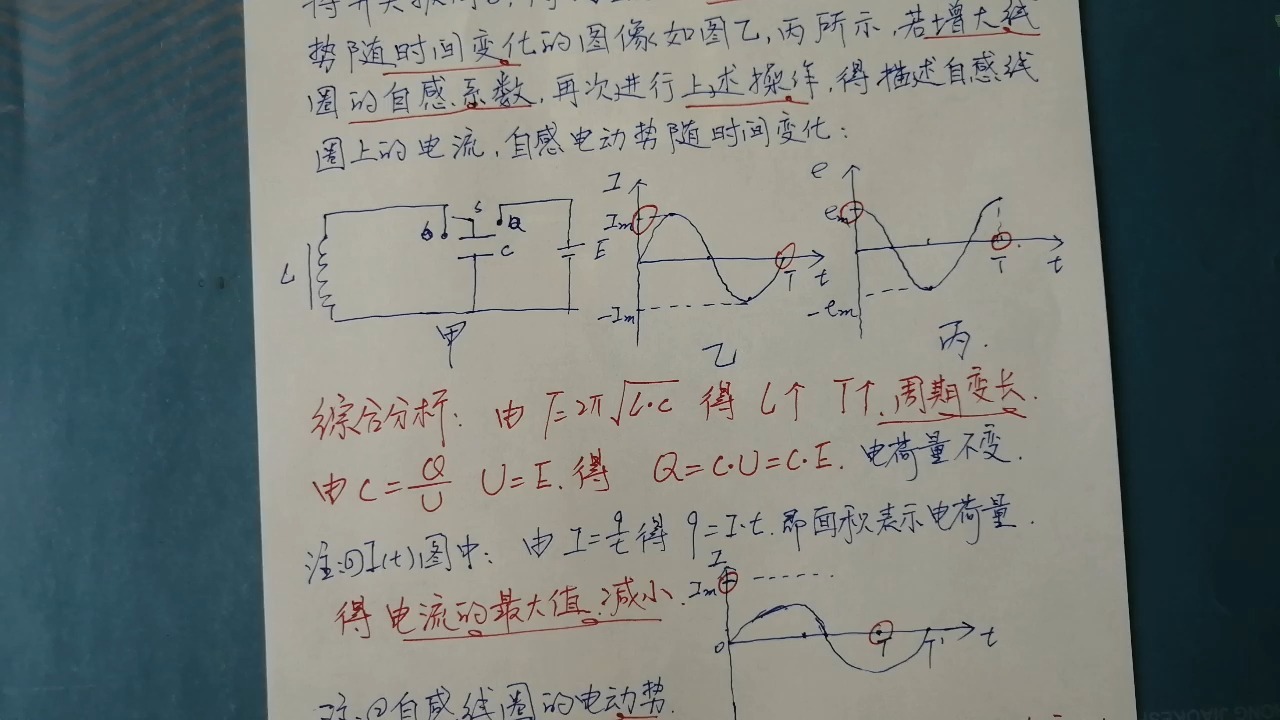 势随时间变化的图像如图乙,丙所示,若增大线
圈的自感系数,再次进行上述操作,得描述自感线
圈上的电流,自感电动势随时间变化:
L b S a C E 甲
I Im -Im T t 乙
e em -em T t 丙.
综合分析: 由 T=2π√L·C 得 L↑ T↑. 周期变长.
由 C=Q/U U=E. 得 Q=C·U=C·E. 电荷量不变.
注:①I(t)图中: 由 I=q/t 得 q=I·t. 即面积表示电荷量.
得电流的最大值减小.
I Im 0 T T' t
注:②自感线圈的电动势.